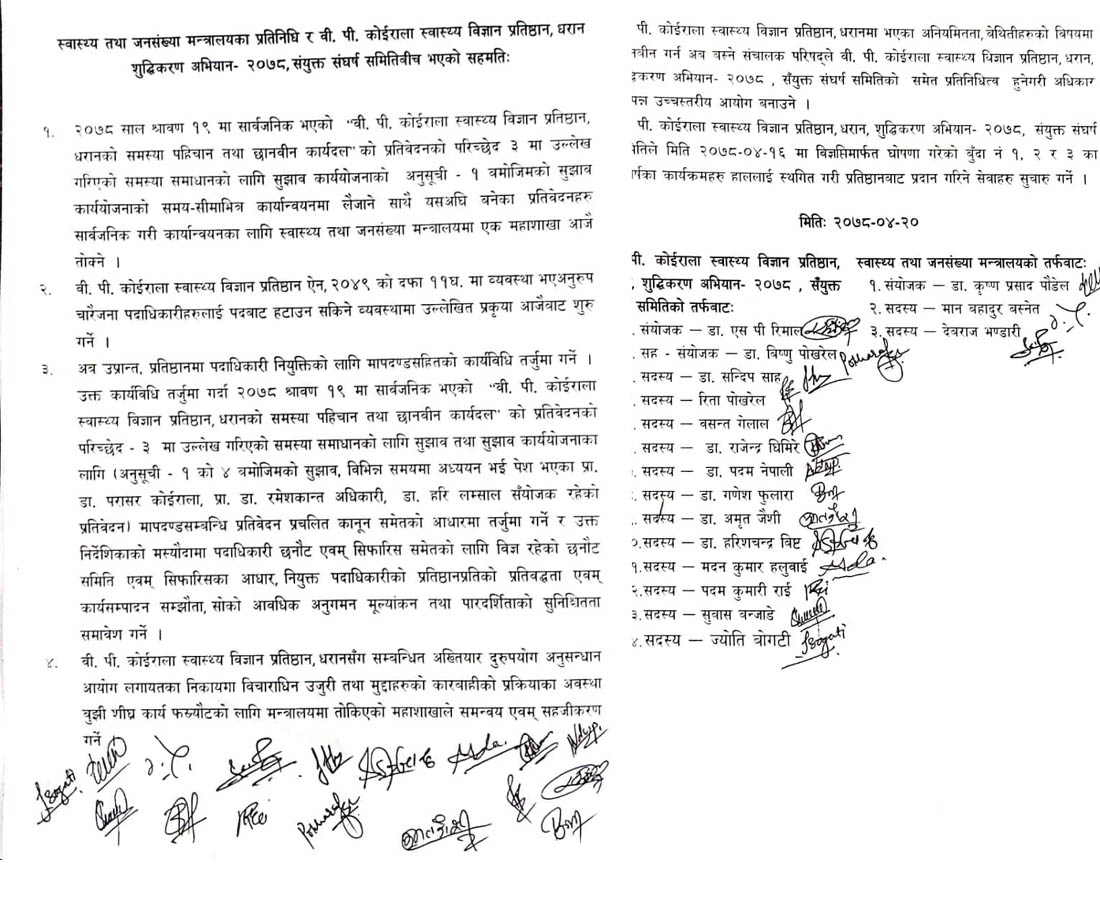 स्वास्थ्य तथा जनसंख्या मन्त्रालयका प्रतिनिधि र वी. पी. कोईराला स्वास्थ्य विज्ञान प्रतिष्ठान, धरान
शुद्धिकरण अभियान- २०७८, संयुक्त संघर्ष समितिवीच भएको सहमतिः
१. २०७८ साल श्रावण १९ मा सार्वजनिक भएको "वी. पी. कोईराला स्वास्थ्य विज्ञान प्रतिष्ठान,
धरानको समस्या पहिचान तथा छानवीन कार्यदल" को प्रतिवेदनको परिच्छेद ३ मा उल्लेख
गरिएको समस्या समाधानको लागि सुझाव कार्ययोजनाको अनुसूची - १ वमोजिमको सुझाव
कार्ययोजनाको समय-सीमाभित्र कार्यान्वयनमा लैजाने साथै यसअघि बनेका प्रतिवेदनहरु
सार्वजनिक गरी कार्यान्वयनका लागि स्वास्थ्य तथा जनसंख्या मन्त्रालयमा एक महाशाखा आजै
तोक्ने ।
२. वी. पी. कोईराला स्वास्थ्य विज्ञान प्रतिष्ठान ऐन, २०४९ को दफा ११घ. मा व्यवस्था भएअनुरुप
चारैजना पदाधिकारीहरुलाई पदबाट हटाउन सकिने व्यवस्थामा उल्लेखित प्रकृया आजैबाट शुरु
गर्ने ।
३. अव उप्रान्त, प्रतिष्ठानमा पदाधिकारी नियुक्तिको लागि मापदण्डसहितको कार्यविधि तर्जुमा गर्ने ।
उक्त कार्यविधि तर्जुमा गर्दा २०७८ श्रावण १९ मा सार्वजनिक भएको "वी. पी. कोईराला
स्वास्थ्य विज्ञान प्रतिष्ठान, धरानको समस्या पहिचान तथा छानवीन कार्यदल" को प्रतिवेदनको
परिच्छेद - ३ मा उल्लेख गरिएको समस्या समाधानको लागि सुझाव तथा सुझाव कार्ययोजनाका
लागि (अनुसूची - १ को ४ वमोजिमको सुझाव, विभिन्न समयमा अध्ययन भई पेश भएका प्रा.
डा. परासर कोईराला, प्रा. डा. रमेशकान्त अधिकारी, डा. हरि लम्साल सँयोजक रहेको
प्रतिवेदन) मापदण्डसम्वन्धि प्रतिवेदन प्रचलित कानून समेतको आधारमा तर्जुमा गर्ने र उक्त
निर्देशिकाको मस्यौदामा पदाधिकारी छनौट एवम् सिफारिस समेतको लागि विज्ञ रहेको छनौट
समिति एवम् सिफारिसका आधार, नियुक्त पदाधिकारीको प्रतिष्ठानप्रतिको प्रतिवद्धता एवम्
कार्यसम्पादन सम्झौता, सोको आवधिक अनुगमन मूल्यांकन तथा पारदर्शिताको सुनिश्चितता
समावेश गर्ने ।
४. वी. पी. कोईराला स्वास्थ्य विज्ञान प्रतिष्ठान, धरानसँग सम्वन्धित अख्तियार दुरुपयोग अनुसन्धान
आयोग लगायतका निकायमा विचाराधिन उजुरी तथा मुद्दाहरुको कारवाहीको प्रक्रियाका अवस्था
वुझी शीघ्र कार्य फर्छ्यौटको लागि मन्त्रालयमा तोकिएको महाशाखाले समन्वय एवम् सहजीकरण
गर्ने
पी. कोईराला स्वास्थ्य विज्ञान प्रतिष्ठान, धरानमा भएका अनियमितता, वेथितीहरुको विषयमा
नवीन गर्न अव बस्ने संचालक परिषद्ले वी. पी. कोईराला स्वास्थ्य विज्ञान प्रतिष्ठान, धरान,
द्धिकरण अभियान- २०७८ , सँयुक्त संघर्ष समितिको समेत प्रतिनिधित्व हुनेगरी अधिकार
पन्न उच्चस्तरीय आयोग वनाउने ।
पी. कोईराला स्वास्थ्य विज्ञान प्रतिष्ठान, धरान, शुद्धिकरण अभियान- २०७८, संयुक्त संघर्ष
मितिले मिति २०७८-०४-१६ मा विज्ञप्तिमार्फत घोषणा गरेको बुँदा नं १, २ र ३ का
र्षका कार्यक्रमहरु हाललाई स्थगित गरी प्रतिष्ठानबाट प्रदान गरिने सेवाहरु सुचारु गर्ने ।
मितिः २०७८-०४-२०
पी. कोईराला स्वास्थ्य विज्ञान प्रतिष्ठान,
, शुद्धिकरण अभियान- २०७८ , सँयुक्त
समितिको तर्फबाटः
. संयोजक – डा. एस पी रिमाल
. सह - संयोजक – डा. बिष्णु पोखरेल
. सदस्य – डा. सन्दिप साह
. सदस्य – रिता पोखरेल
. सदस्य – वसन्त गेलाल
. सदस्य – डा. राजेन्द्र घिमिरे
. सदस्य – डा. पदम नेपाली
. सदस्य – डा. गणेश फुलारा
. सदस्य – डा. अमृत जैशी
०.सदस्य – डा. हरिशचन्द्र विष्ट
१.सदस्य – मदन कुमार हलुवाई
२.सदस्य – पदम कुमारी राई
३.सदस्य – सुवास बन्जाडे
४.सदस्य – ज्योति बोगटी
स्वास्थ्य तथा जनसंख्या मन्त्रालयको तर्फबाटः
१. संयोजक – डा. कृष्ण प्रसाद पौडेल
२. सदस्य – मान वहादुर वस्नेत
३. सदस्य – देवराज भण्डारी